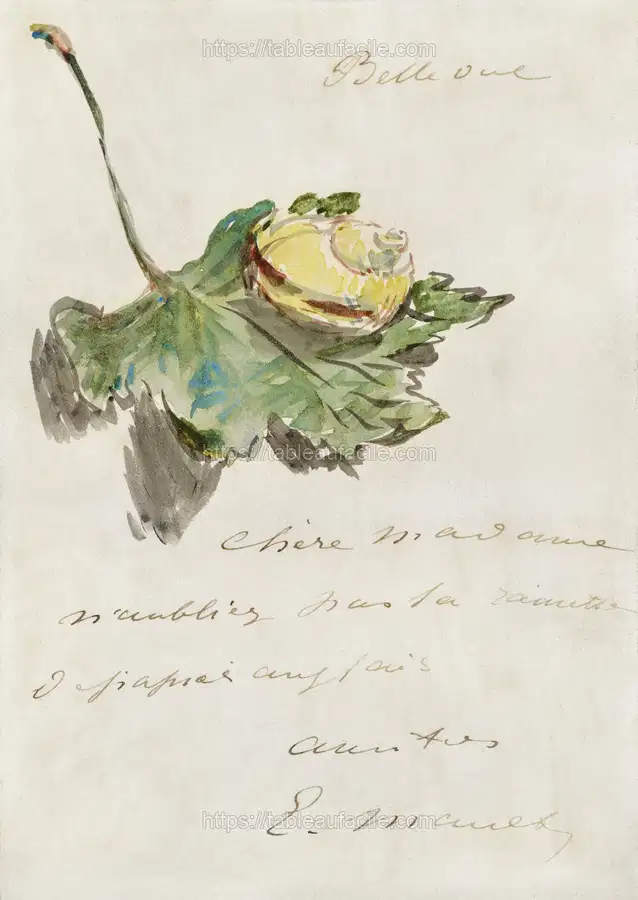 https://tableaufacile.com
Bellevue
https://tableaufacile.com
chère madame
n'oubliez pas la ramette
de papier anglais
amitiés
E. Manet
https://tableaufacile.com